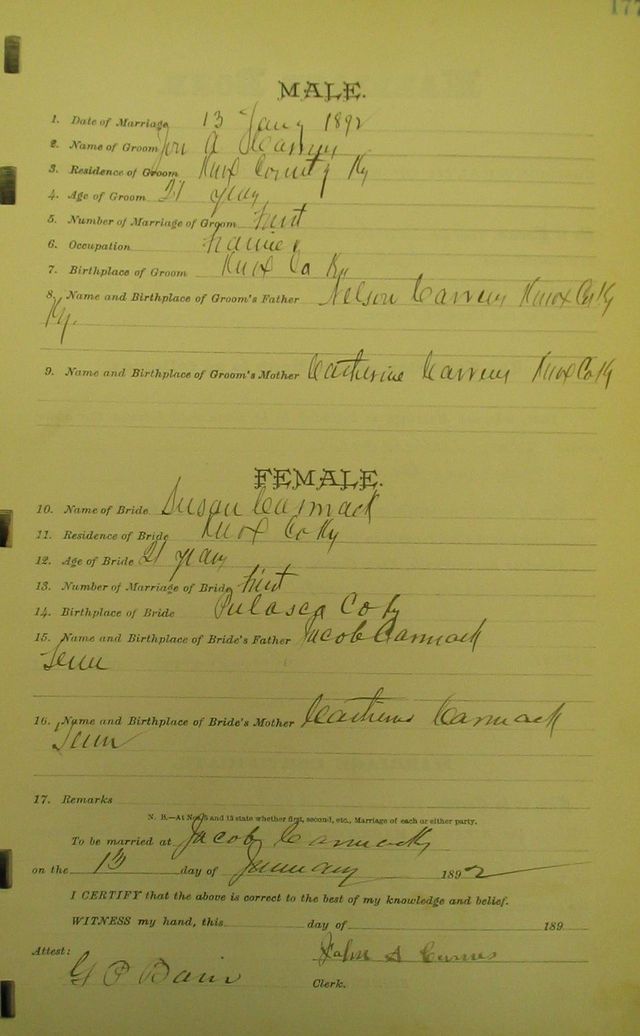 177
MALE.
1. Date of Marriage 13 Jany 1892
2. Name of Groom Jon A
3. Residence of Groom Knox County Ky
4. Age of Groom 21 years
5. Number of Marriage of Groom First
6. Occupation Farmer
7. Birthplace of Groom Knox Co Ky
8. Name and Birthplace of Groom's Father Nelson Carnes Knox Co Ky
Ky.
9. Name and Birthplace of Groom's Mother Catherine Carnes Knox Co Ky
FEMALE.
10. Name of Bride Susan Carmack
11. Residence of Bride Knox Co Ky
12. Age of Bride 21 years
13. Number of Marriage of Bride First
14. Birthplace of Bride Pulasca Co Ky
15. Name and Birthplace of Bride's Father Jacob Carmack
Tenn
16. Name and Birthplace of Bride's Mother Carmack
Tenn
17. Remarks
N. B.—At Nos. 5 and 13 state whether first, second, etc., Marriage of each or either party.
To be married at Jacob Carmacks
on the 13 day of January 1892
I CERTIFY that the above is correct to the best of my knowledge and belief.
WITNESS my hand, this day of 189
Attest: John A Carnes
G P Bain Clerk.